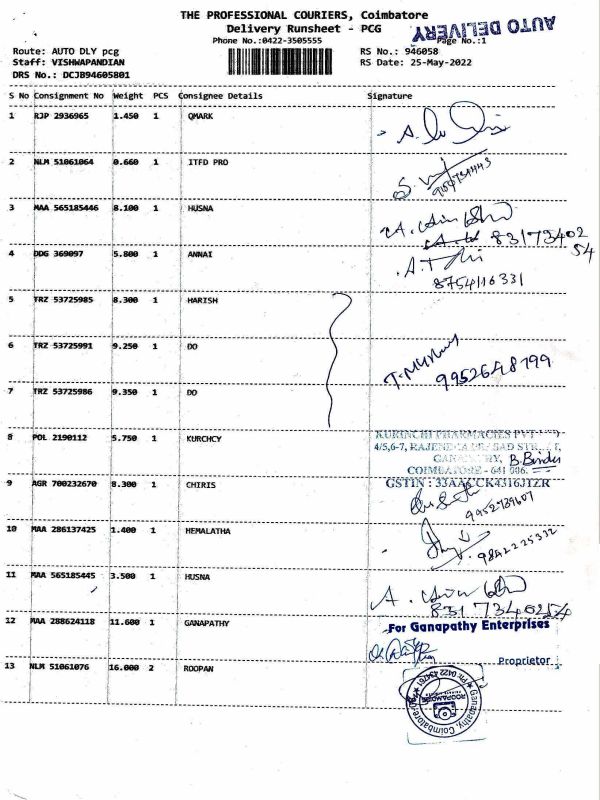 THE PROFESSIONAL COURIERS, Coimbatore
Delivery Runsheet - PCG
AUTO DELIVERY
Phone No.:0422-3505555
Page No.:1
Route: AUTO DLY pcg
RS No.: 946058
Staff: VISHWAPANDIAN
RS Date: 25-May-2022
DRS No.: DCJB94605801
S No Consignment No Weight PCS Consignee Details Signature
1 RJP 2936965 1.450 1 QMARK
2 NLM 51061064 0.660 1 ITFD PRO
3 MAA 565185446 8.100 1 HUSNA
83173402
54
4 DDG 369097 5.800 1 ANNAI
8754116331
5 TRZ 53725985 8.300 1 HARISH
6 TRZ 53725991 9.250 1 DO
9952648799
7 TRZ 53725986 9.350 1 DO
8 POL 2190112 5.750 1 KURCHCY
KURINCHI PHARMACIES PVT
COIMBATORE - 641 006.
9 AGR 700232670 8.300 1 CHIRIS
9952739607
10 MAA 286137425 1.400 1 HEMALATHA
9842225332
11 MAA 565185445 3.500 1 HUSNA
8317340254
12 MAA 288624118 11.600 1 GANAPATHY
For Ganapathy Enterprises
Proprietor
13 NLM 51061076 16.000 2 ROOPAN
Ganapathy, Coimbatore